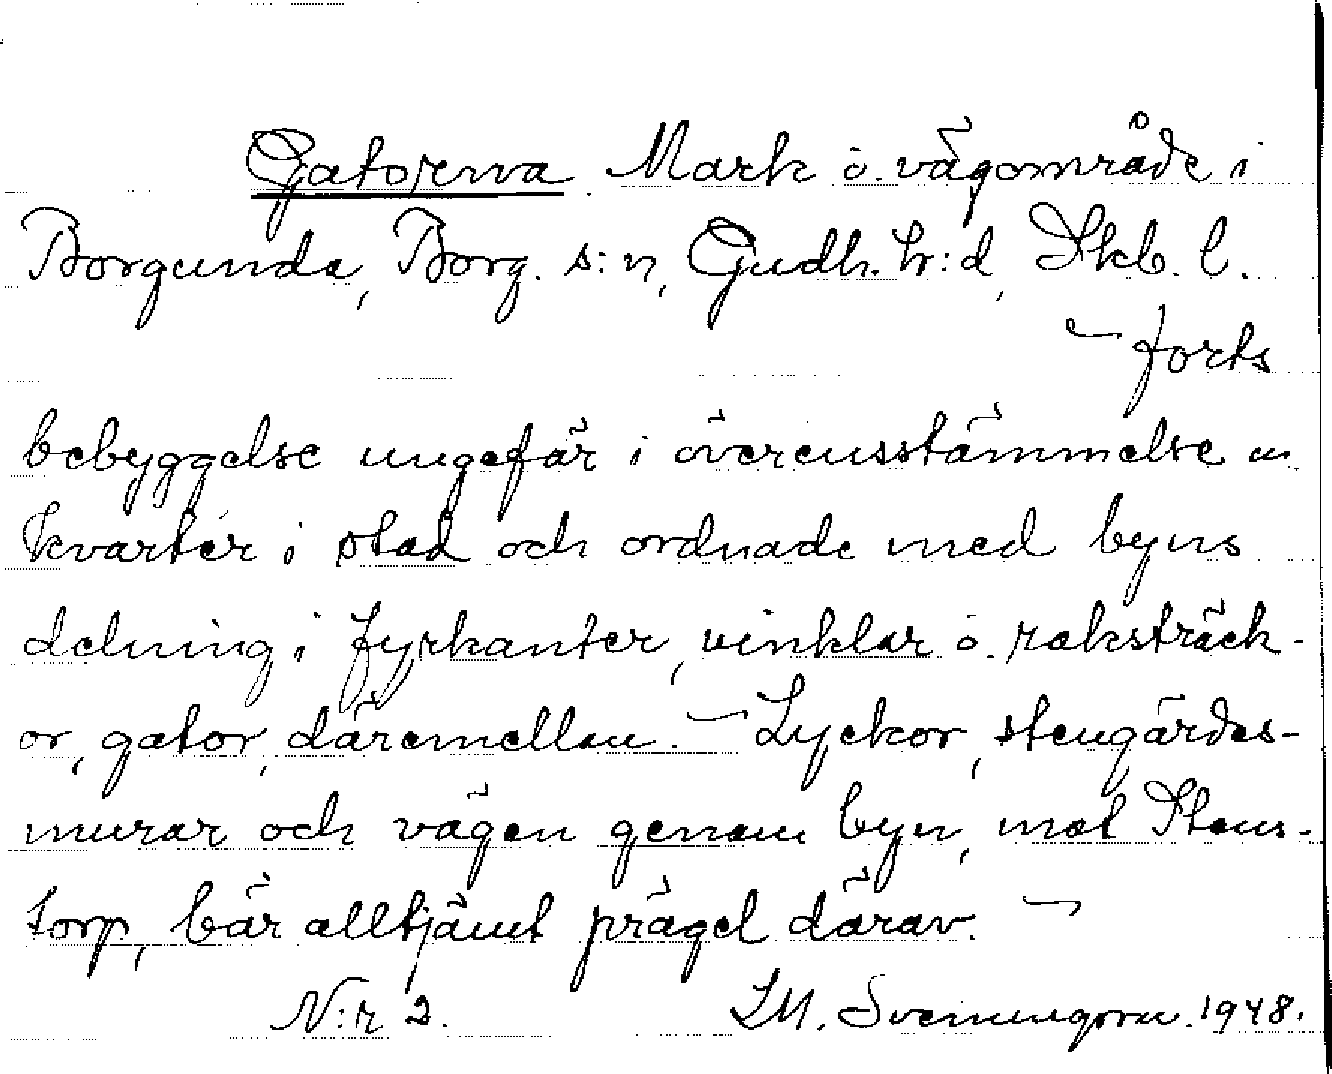 Gatorna Mark o. vägområde i
Borgunda, Borg. s:n, Gudh. hr:d, Skb. l.
— forts
bebyggelse ungefär i överensstämmelse m
kvartér i stad och ordnade med byns
delning i fyrkanter, vinklar o. raksträck-
or, gator, däremellan. — Lyckor, stengärdes-
murar och vägen genom byn, mot Stens-
torp, bär alltjämt prägel därav. —
N:r 2. LM. Svenungsson. 1948.